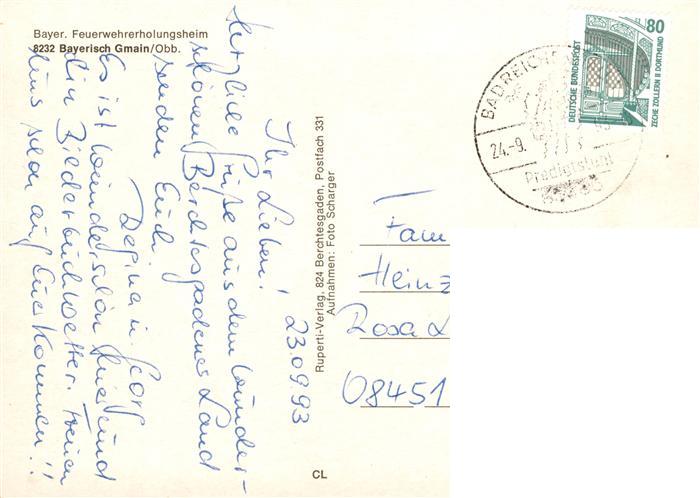 Bayer. Feuerwehrerholungsheim
8232 Bayerisch Gmain/Obb.
Ihr Lieben! 23.09.93
Herzliche Grüße aus dem wunder-
schönen Berchtesgadener Land
senden Euch
Regina u. Georg
Es ist wunderschön hier und
ein Bilderbuchwetter. Freuen
uns schon auf Euer Kommen!!
Ruperti-Verlag, 824 Berchtesgaden, Postfach 331
Aufnahmen: Foto Scharger
CL
80
DEUTSCHE BUNDESPOST
ZECHE ZOLLERN II DORTMUND
BAD REICH
24.-9.
Predigtstuhl
Fam
Heinz
Rosa L
08451